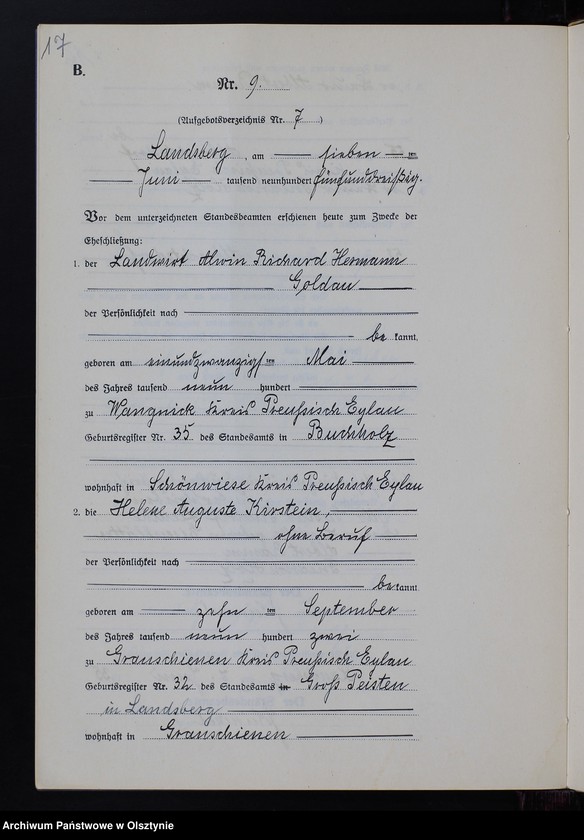 17
B.
Nr. 9.
(Aufgebotsverzeichnis Nr. 7)
Landsberg, am sieben ten
Juni tausend neunhundert fünfunddreißig.
Vor dem unterzeichneten Standesbeamten erschienen heute zum Zwecke der
Eheschließung:
1. der Landwirt Alwin Richard Hermann
Goldau
der Persönlichkeit nach
be kannt,
geboren am einundzwanzigsten Mai
des Jahres tausend neun hundert
zu Wangnick Kreis Preußisch Eylau
Geburtsregister Nr. 35 des Standesamts in Buchholz
wohnhaft in Schönwiese Kreis Preußisch Eylau
2. die Helene Auguste Kirstein,
ohne Beruf
der Persönlichkeit nach
be kannt
geboren am zehn ten September
des Jahres tausend neun hundert zwei
zu Grauschienen Kreis Preußisch Eylau
Geburtsregister Nr. 32 des Standesamts in Groß Peisten
in Landsberg
wohnhaft in Grauschienen
Archiwum Państwowe w Olsztynie